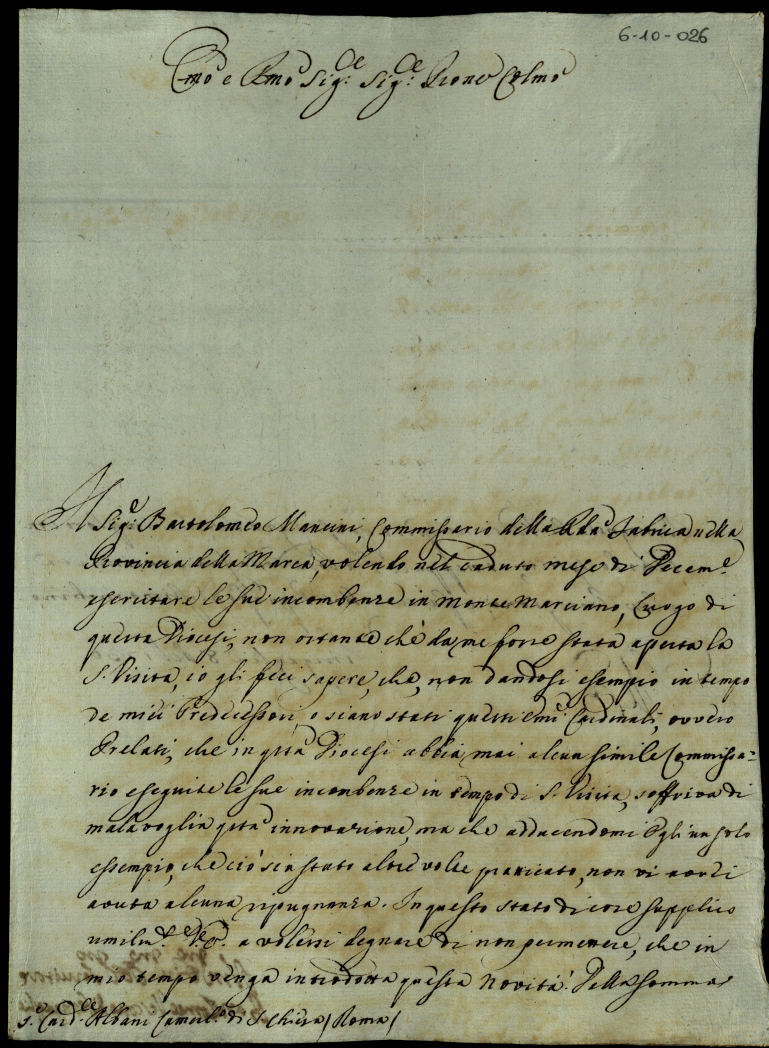 6-10-026
Emo e Rmo Sig:re Sig:re Prone Colmo
Il Sig:e Bartolomeo Mancini, Commissario della Rda Fabrica nella
Provincia della Marca, volendo nel caduto mese di Decem:e
esercitare le sue incombenze in Monte Marciano, Luogo di
questa Diocesi, non ostante chè da me fosse stata aperta la
S. Visita, io gli feci sapere, che, non dandosi esempio in tempo
de miei Predecessori, o siano stati questi Emi Cardinali, ovvero
Prelati, che in qsta Diocesi abbia mai alcun simile Commissa=
rio eseguite le sue incombenze in tempo di S. Visita, soffriva di
mala voglia qsta innovazione, ma che adducendomi Egli un solo
essempio, che ciò sia stato altre volte praticato, non vi avrei
avuta alcuna ripugnanza. In questo stato di cose supplico
umilmte V. E. a volersi degnare di non permettere, che in
mio tempo venga introdotta questa Novità. Della somma
S.r Card.le Albani Camerl.o di S. Chiesa / Roma /